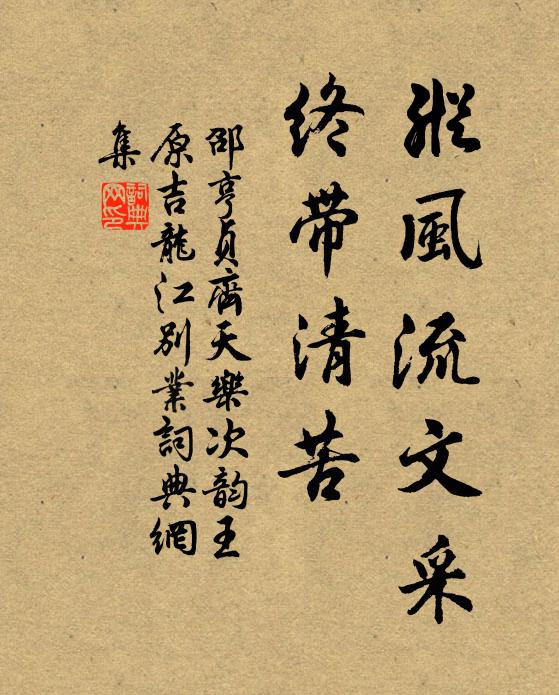 縱風流文采
終帶清苦
邵亨貞齊天樂次韵王
原吉龍江別業詞典網
集
詞典
网印